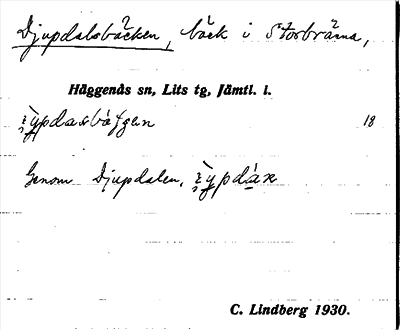 Djupdalsbäcken, bäck i Storbränna,
Häggenås sn, Lits tg, Jämtl. l.
18
Genom Djupdalen,
C. Lindberg 1930.